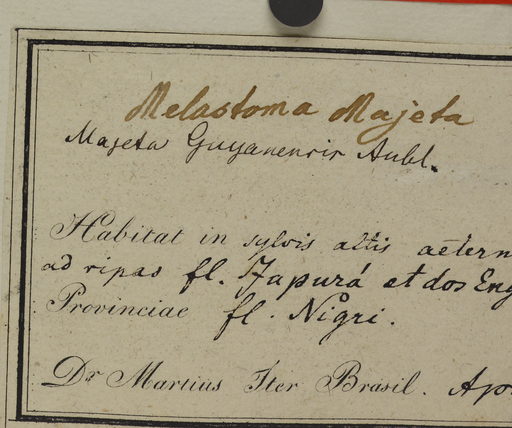 Melastoma Majeta
Majeta Guyanensis Aubl.
Habitat in sylvis altis aetern
ad ripas fl. Japurá et dos Eng
Provinciae fl. Nigri.
Dr Martius Iter Brasil. Ap